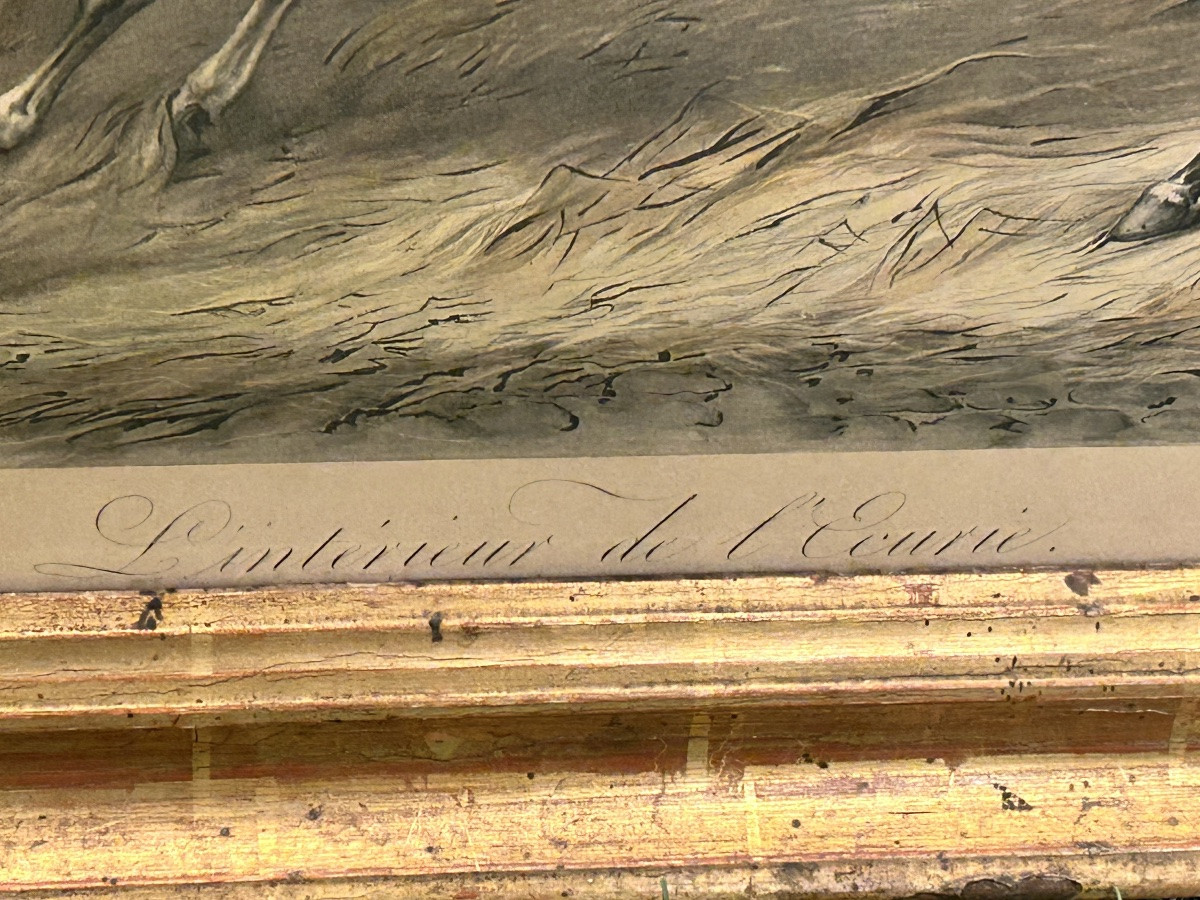 L'intérieur de l'Ecurie.